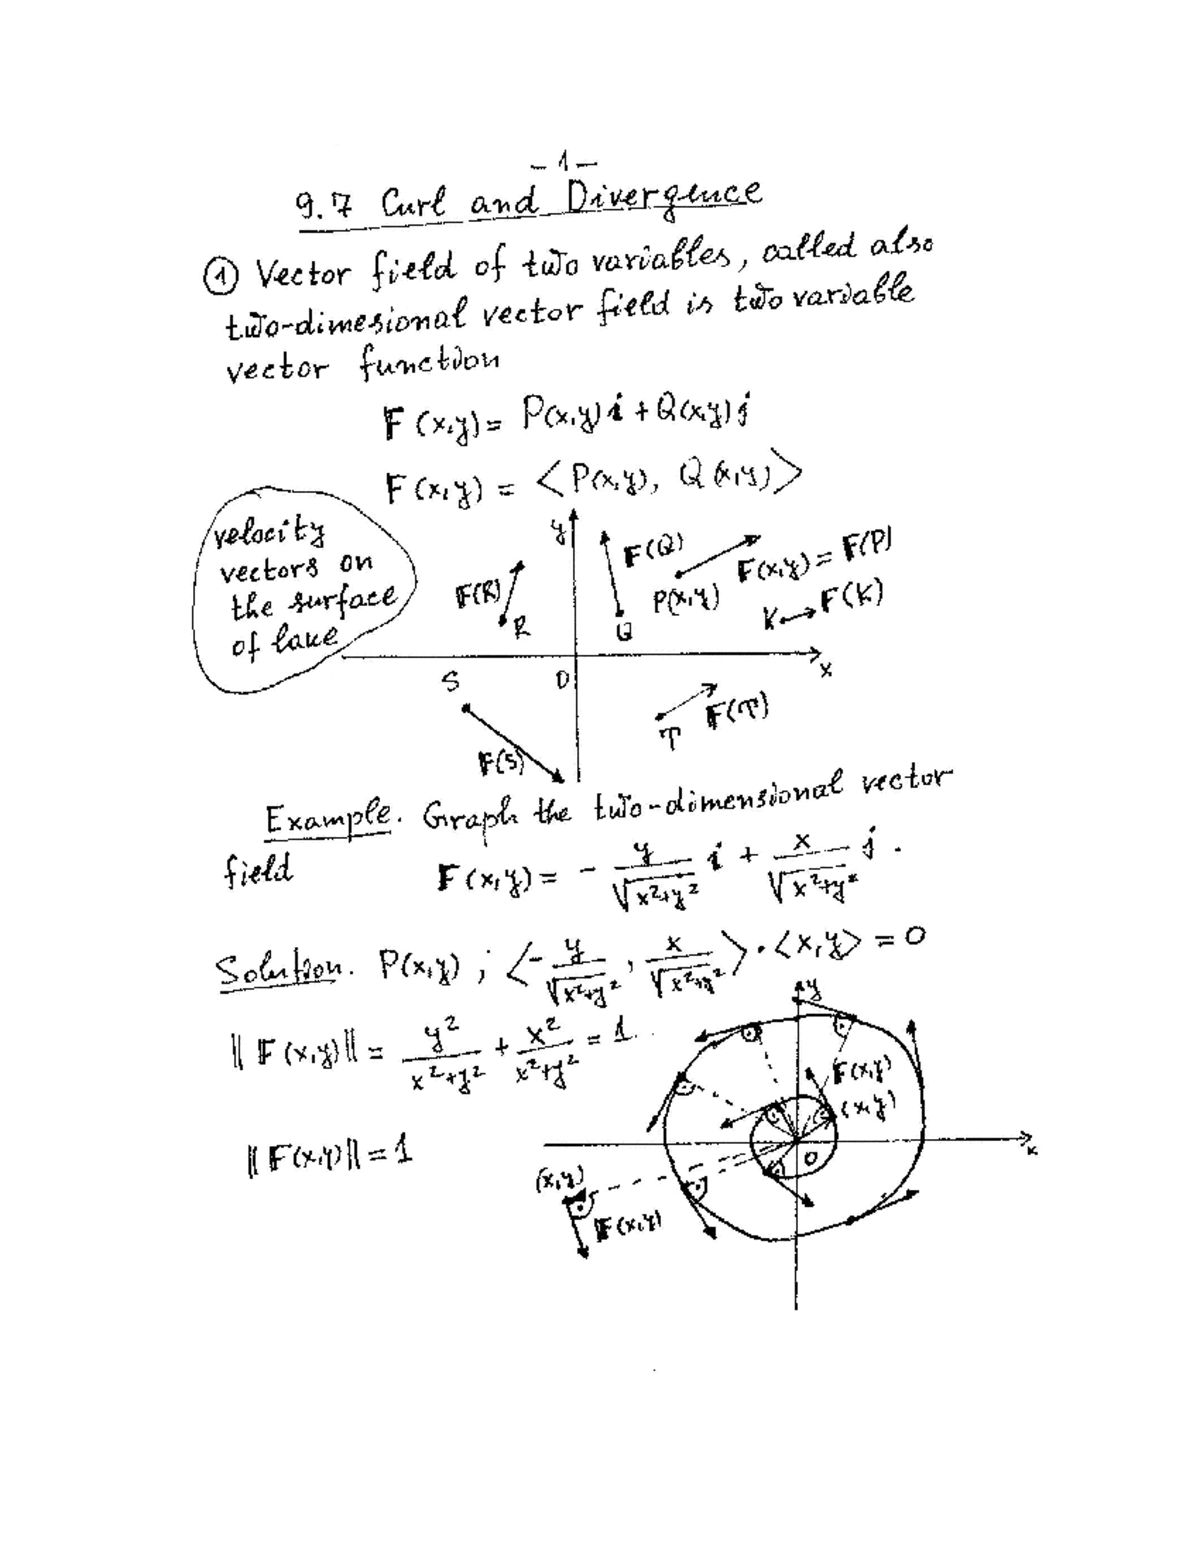 – 1 –
9.7 Curl and Divergence
① Vector field of two variables, called also
two-dimesional vector field is two variable
vector function
F (x,y) = P(x,y) i + Q(x,y) j
F (x,y) = ⟨P(x,y), Q(x,y)⟩
velocity
vectors on
the surface
of lake
y
F(R)
R
F(Q)
Q
P(x,y)
F(x,y) = F(P)
K
F(K)
x
S
O
F(S)
T
F(T)
Example. Graph the two-dimensional vector
field F(x,y) = - y/√x²+y² i + x/√x²+y² j .
Solution. P(x,y) ; ⟨- y/√x²+y² , x/√x²+y² ⟩ · ⟨x,y⟩ = 0
‖ F(x,y)‖ = y²/x²+y² + x²/x²+y² = 1.
‖ F(x,y)‖ = 1
y
F(x,y)
(x,y)
x
O
(x,y)
F(x,y)